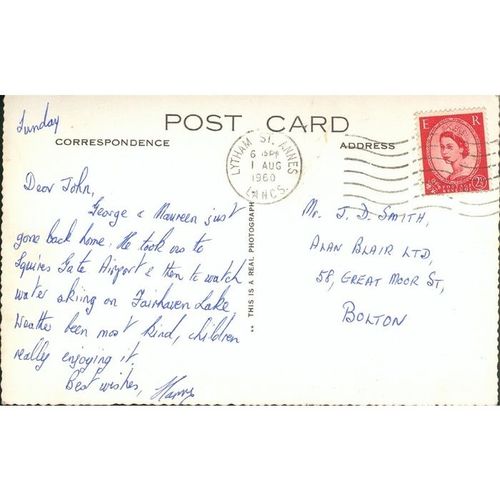 Sunday
POST CARD
CORRESPONDENCE
ADDRESS
LYTHAM ST. ANNES
6 15 PM
1 AUG
1960
LANCS.
E R
2½
Dear John,
George & Maureen just
gone back home. He took us to
Squires Gate Airport & then to watch
water skiing on Fairhaven Lake,
Weather been most kind, children
really enjoying it.
Best wishes, Harry
THIS IS A REAL PHOTOGRAPH
Mr. J. D. SMITH,
ALAN BLAIR LTD,
58, GREAT MOOR ST,
BOLTON